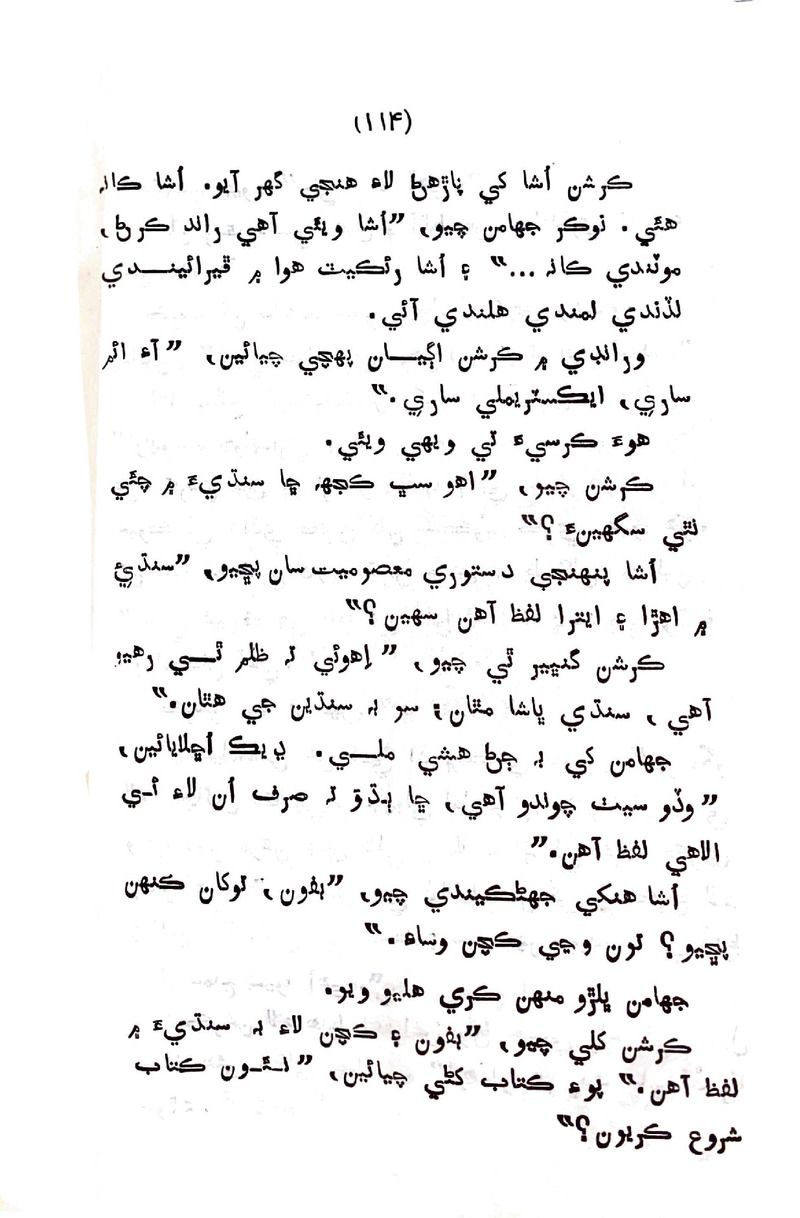 (۱۱۴)
ڪرشن اُشا کي پاڙهڻ لاءِ هنجي گهر آيو. اُشا ڪانہ
هئي. نوڪر جهامن چيو، ”اُشا ويئي آهي راند ڪرڻ،
موٽندي ڪانہ ...“ ۽ اُشا رئڪيٽ هوا ۾ ڦيرائينـــدي
لڏندي لمندي هلندي آئي.
ورانڊي ۾ ڪرشن اڳيـــان پهچي چيائين، ”آءِ ائم
ساري، ايڪسٽريملي ساري.“
هوءَ ڪرسيءَ تي ويهي ويئي.
ڪرشن چيو، ”اهو سڀ ڪجهہ ڇا سنڌيءَ ۾ چئي
نٿي سگهينءَ؟“
اُشا پنهنجي دستوري معصوميت سان پڇيو، ”سنڌيءَ
۾ اهڙا ۽ ايترا لفظ آهن سهين؟“
ڪرشن گنڀير ٿي چيو، ”اِهوئي تہ ظلم ٿـــي رهيو
آهي، سنڌي ڀاشا مٿان؛ سو بہ سنڌين جي هٿان.“
جهامن کي بہ ڄڻ هشي ملـــي. ڊيڪ اُڇلايائين،
”وڏو سيٺ چوندو آهي، ڇا ٻـڌڌ تہ صرف اُن لاءِ ئـي
الاهي لفظ آهن.”
اُشا هنکي جهڻڪيندي چيو، ”بفون، توکان ڪنهن
پڇيو؟ تون وڃي ڪچن وساءِ.“
جهامن ڀلڙو منهن ڪري هليو ويو.
ڪرشن کلي چيو، ”بفون ۽ ڪچن لاءِ بہ سنڌيءَ ۾
لفظ آهن.“ پوءِ ڪتاب کڻي چيائين، ”نئـون ڪتاب
شروع ڪريون؟“